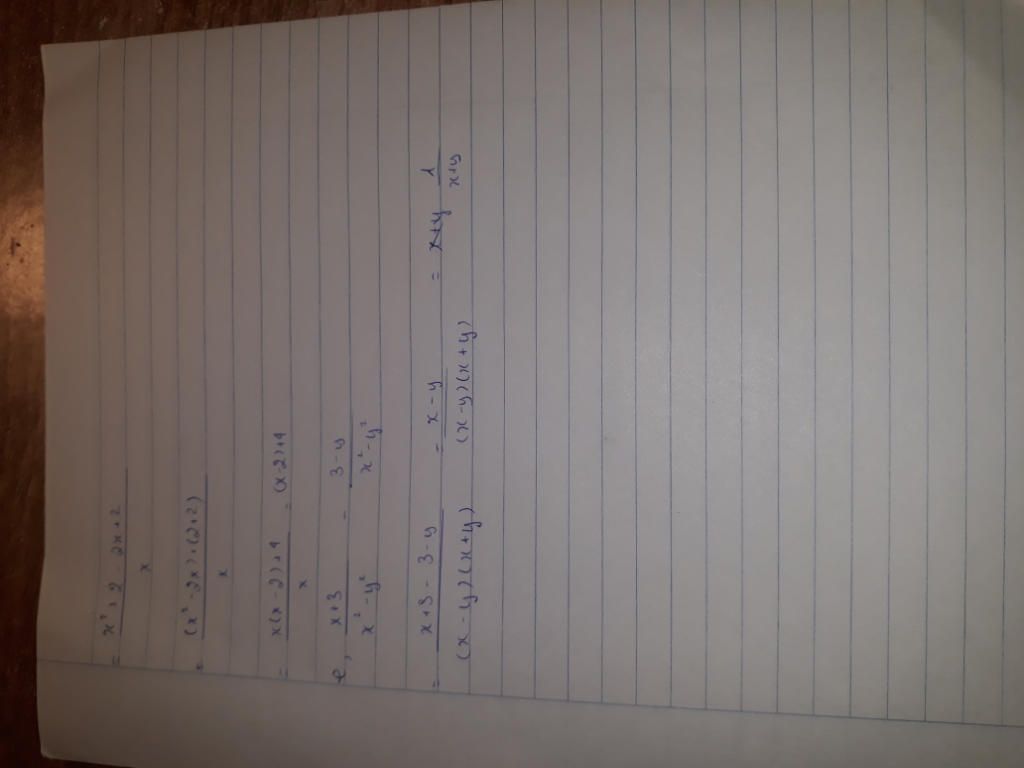 = x² + 2 - 2x + 2 / x
= (x² - 2x) + (2+2) / x
= x(x - 2) + 4 / x = (x-2) + 4
e, x+3 / x² - y² - 3-y / x² - y²
= x+3 - 3-y / (x - y)(x+y) = x - y / (x-y)(x+y) = x+y 1 / x+y